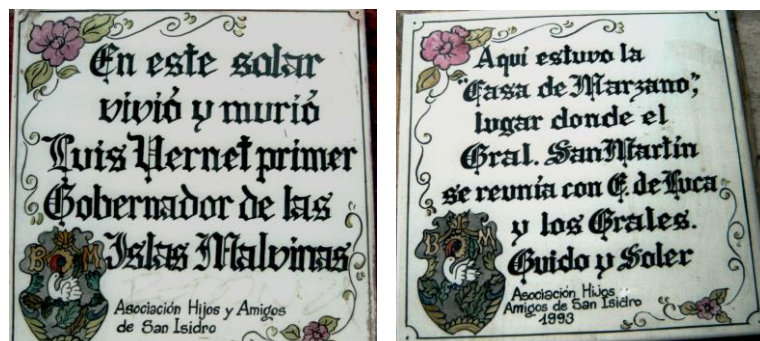 En este solar
vivió y murió
Luis Vernet primer
Gobernador de las
Islas Malvinas
B M
Asociación Hijos y Amigos
de San Isidro
Aquí estuvo la
"Casa de Marzano",
lugar donde el
Gral. San Martín
se reunía con E. de Luca
y los Grales.
Guido y Soler
B M
Asociación Hijos
Amigos de San Isidro
1993